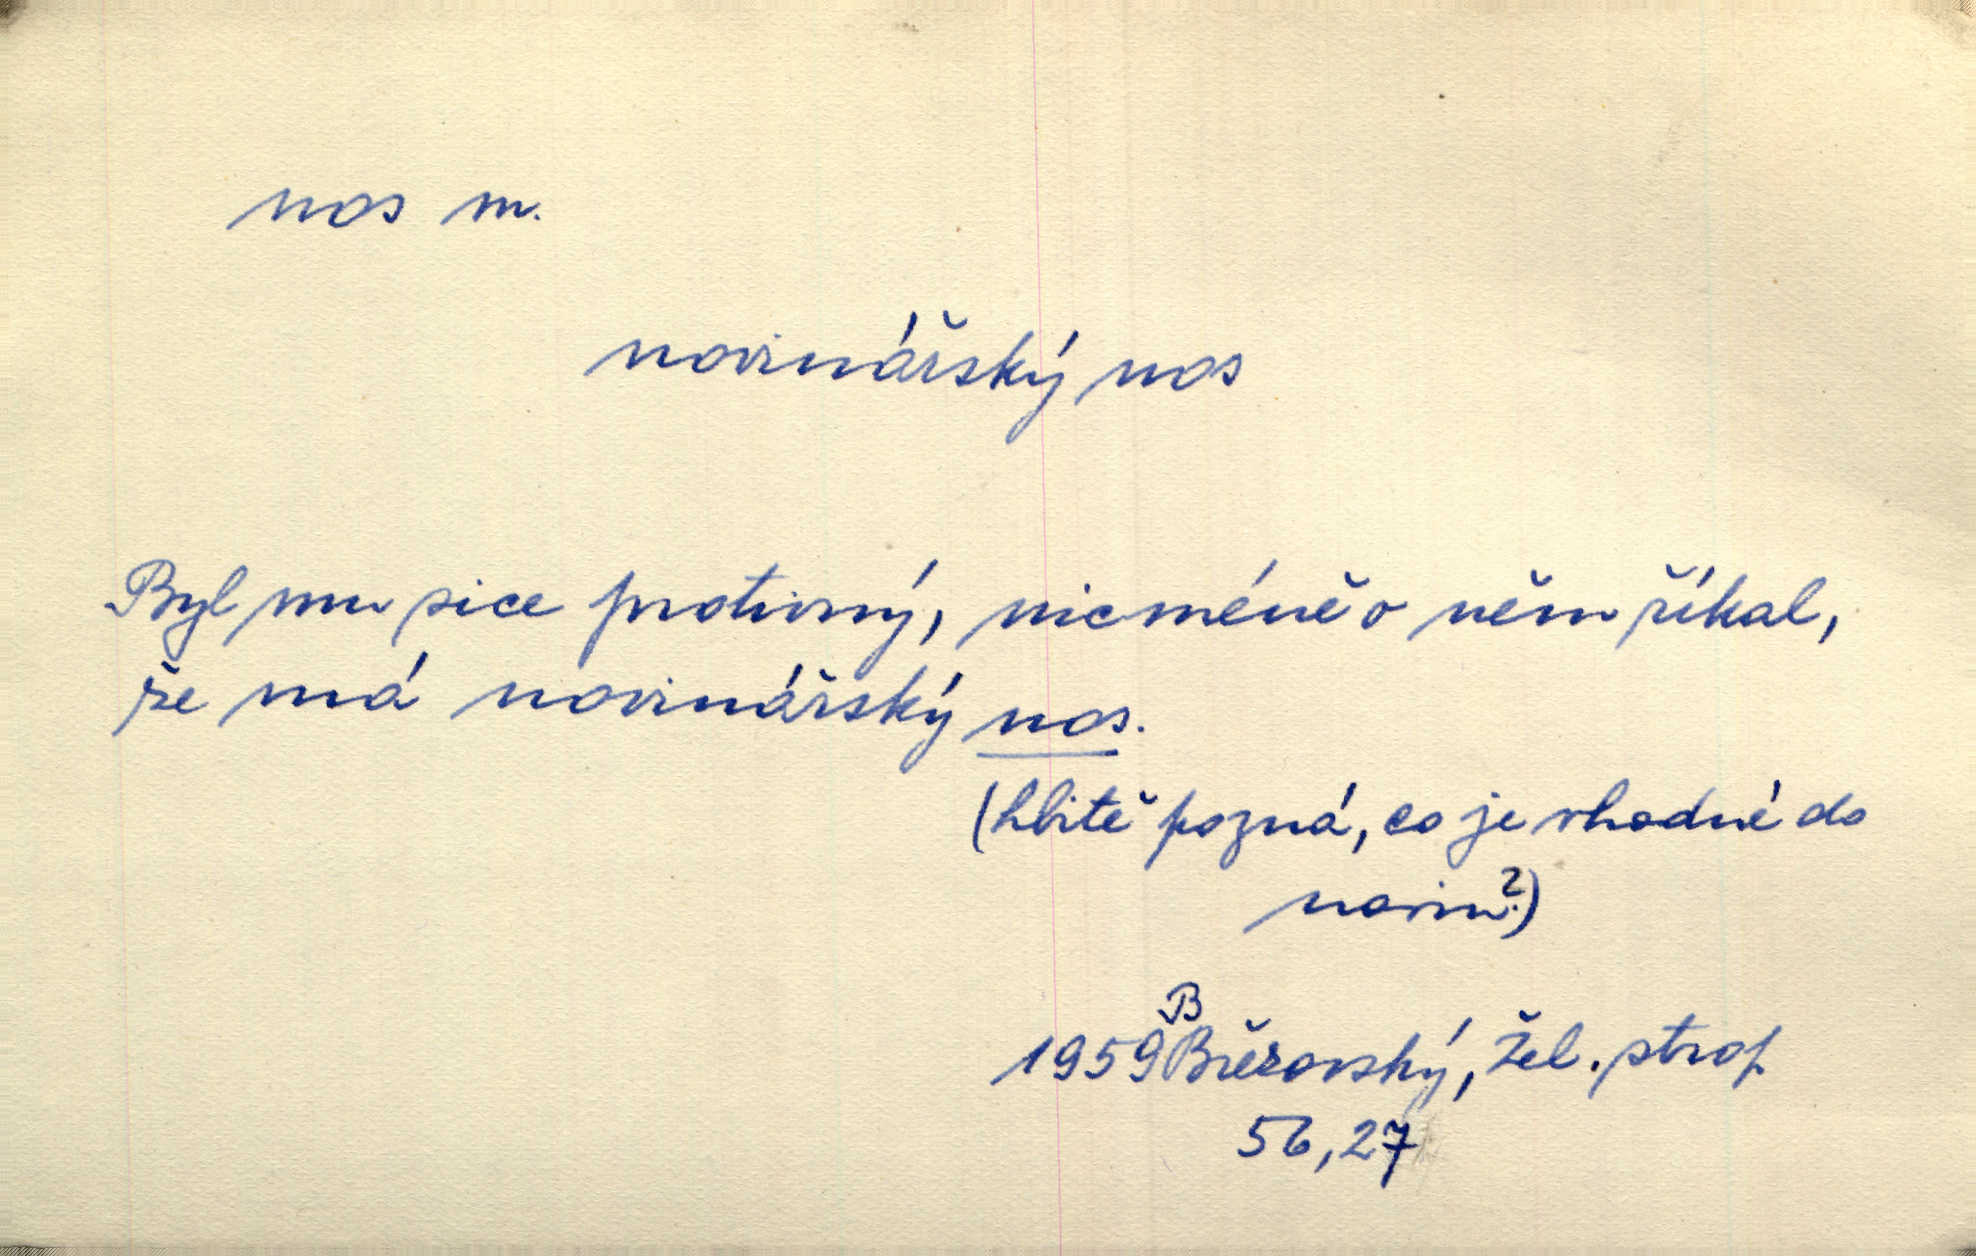 nos m.
novinářský nos
Byl mu sice protivný, nicméně o něm říkal,
že má novinářský nos.
(hbitě pozná, co je vhodné do
novin?)
B
1959 Březovský, Žel. strop
56, 27